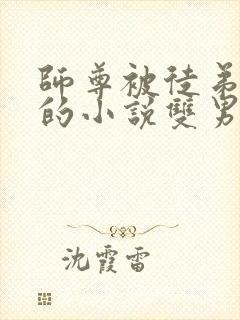 師尊被徒弟
的小說雙男
沈霞雷